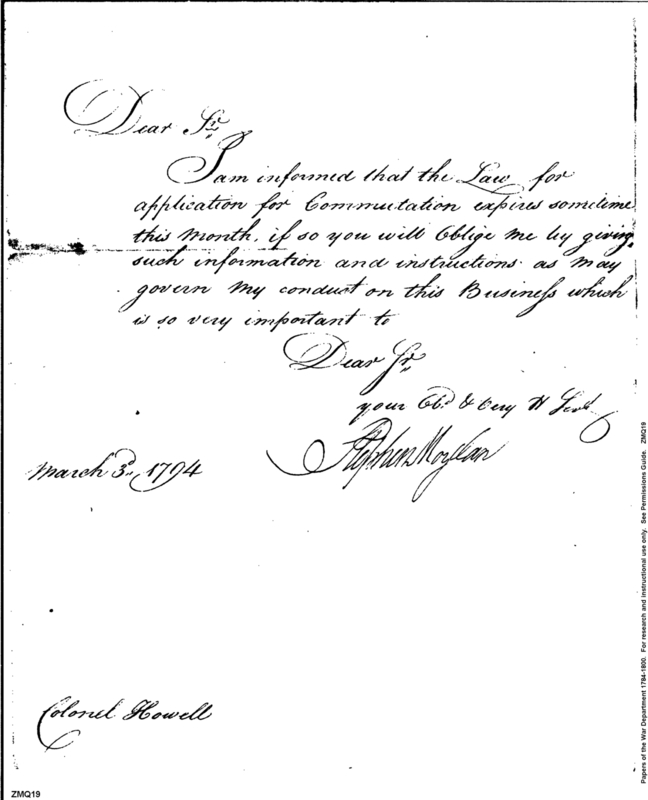 Dear Sr.
I am informed that the Law for
application for Commutation expires sometime
this Month, if so you will Oblige me by giving
such information and instructions as may
govern my conduct on this Business which
is so very important to
Dear Sr.
your Obt. & very H Servt.
Stephen Moylan
March 3d. 1794
Colonel Howell
ZMQ19
Papers of the War Department 1784-1800. For research and instructional use only. See Permissions Guide. ZMQ19